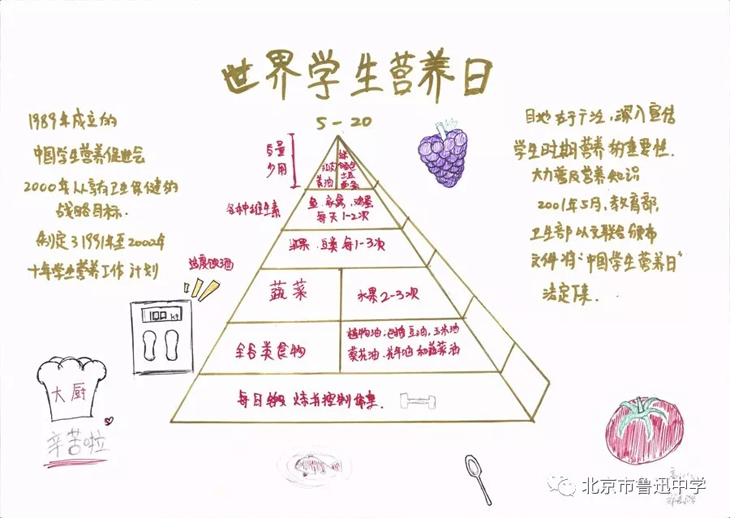 世界学生营养日
5-20
1989年成立的
中国学生营养促进会
2000年人人享有卫生保健的
战略目标.
制定了1991年至2000年
十年学生营养工作计划
目的在于广泛,深入宣传
学生时期营养的重要性.
大力普及营养知识
2001年5月,教育部
卫生部以文联合颁布
文件将"中国学生营养日"
法定下来.
尽量
少用
黄油
各种维生素
鱼、家禽、鸡蛋
每天1-2次
坚果、豆类每1-3次
适度饮酒
蔬菜
水果2-3次
全谷类食物
植物油,包括豆油,玉米油
葵花油,花生油和蔬菜油
每日锻炼并控制体重.
100 kg
大厨
辛苦啦
北京市鲁迅中学